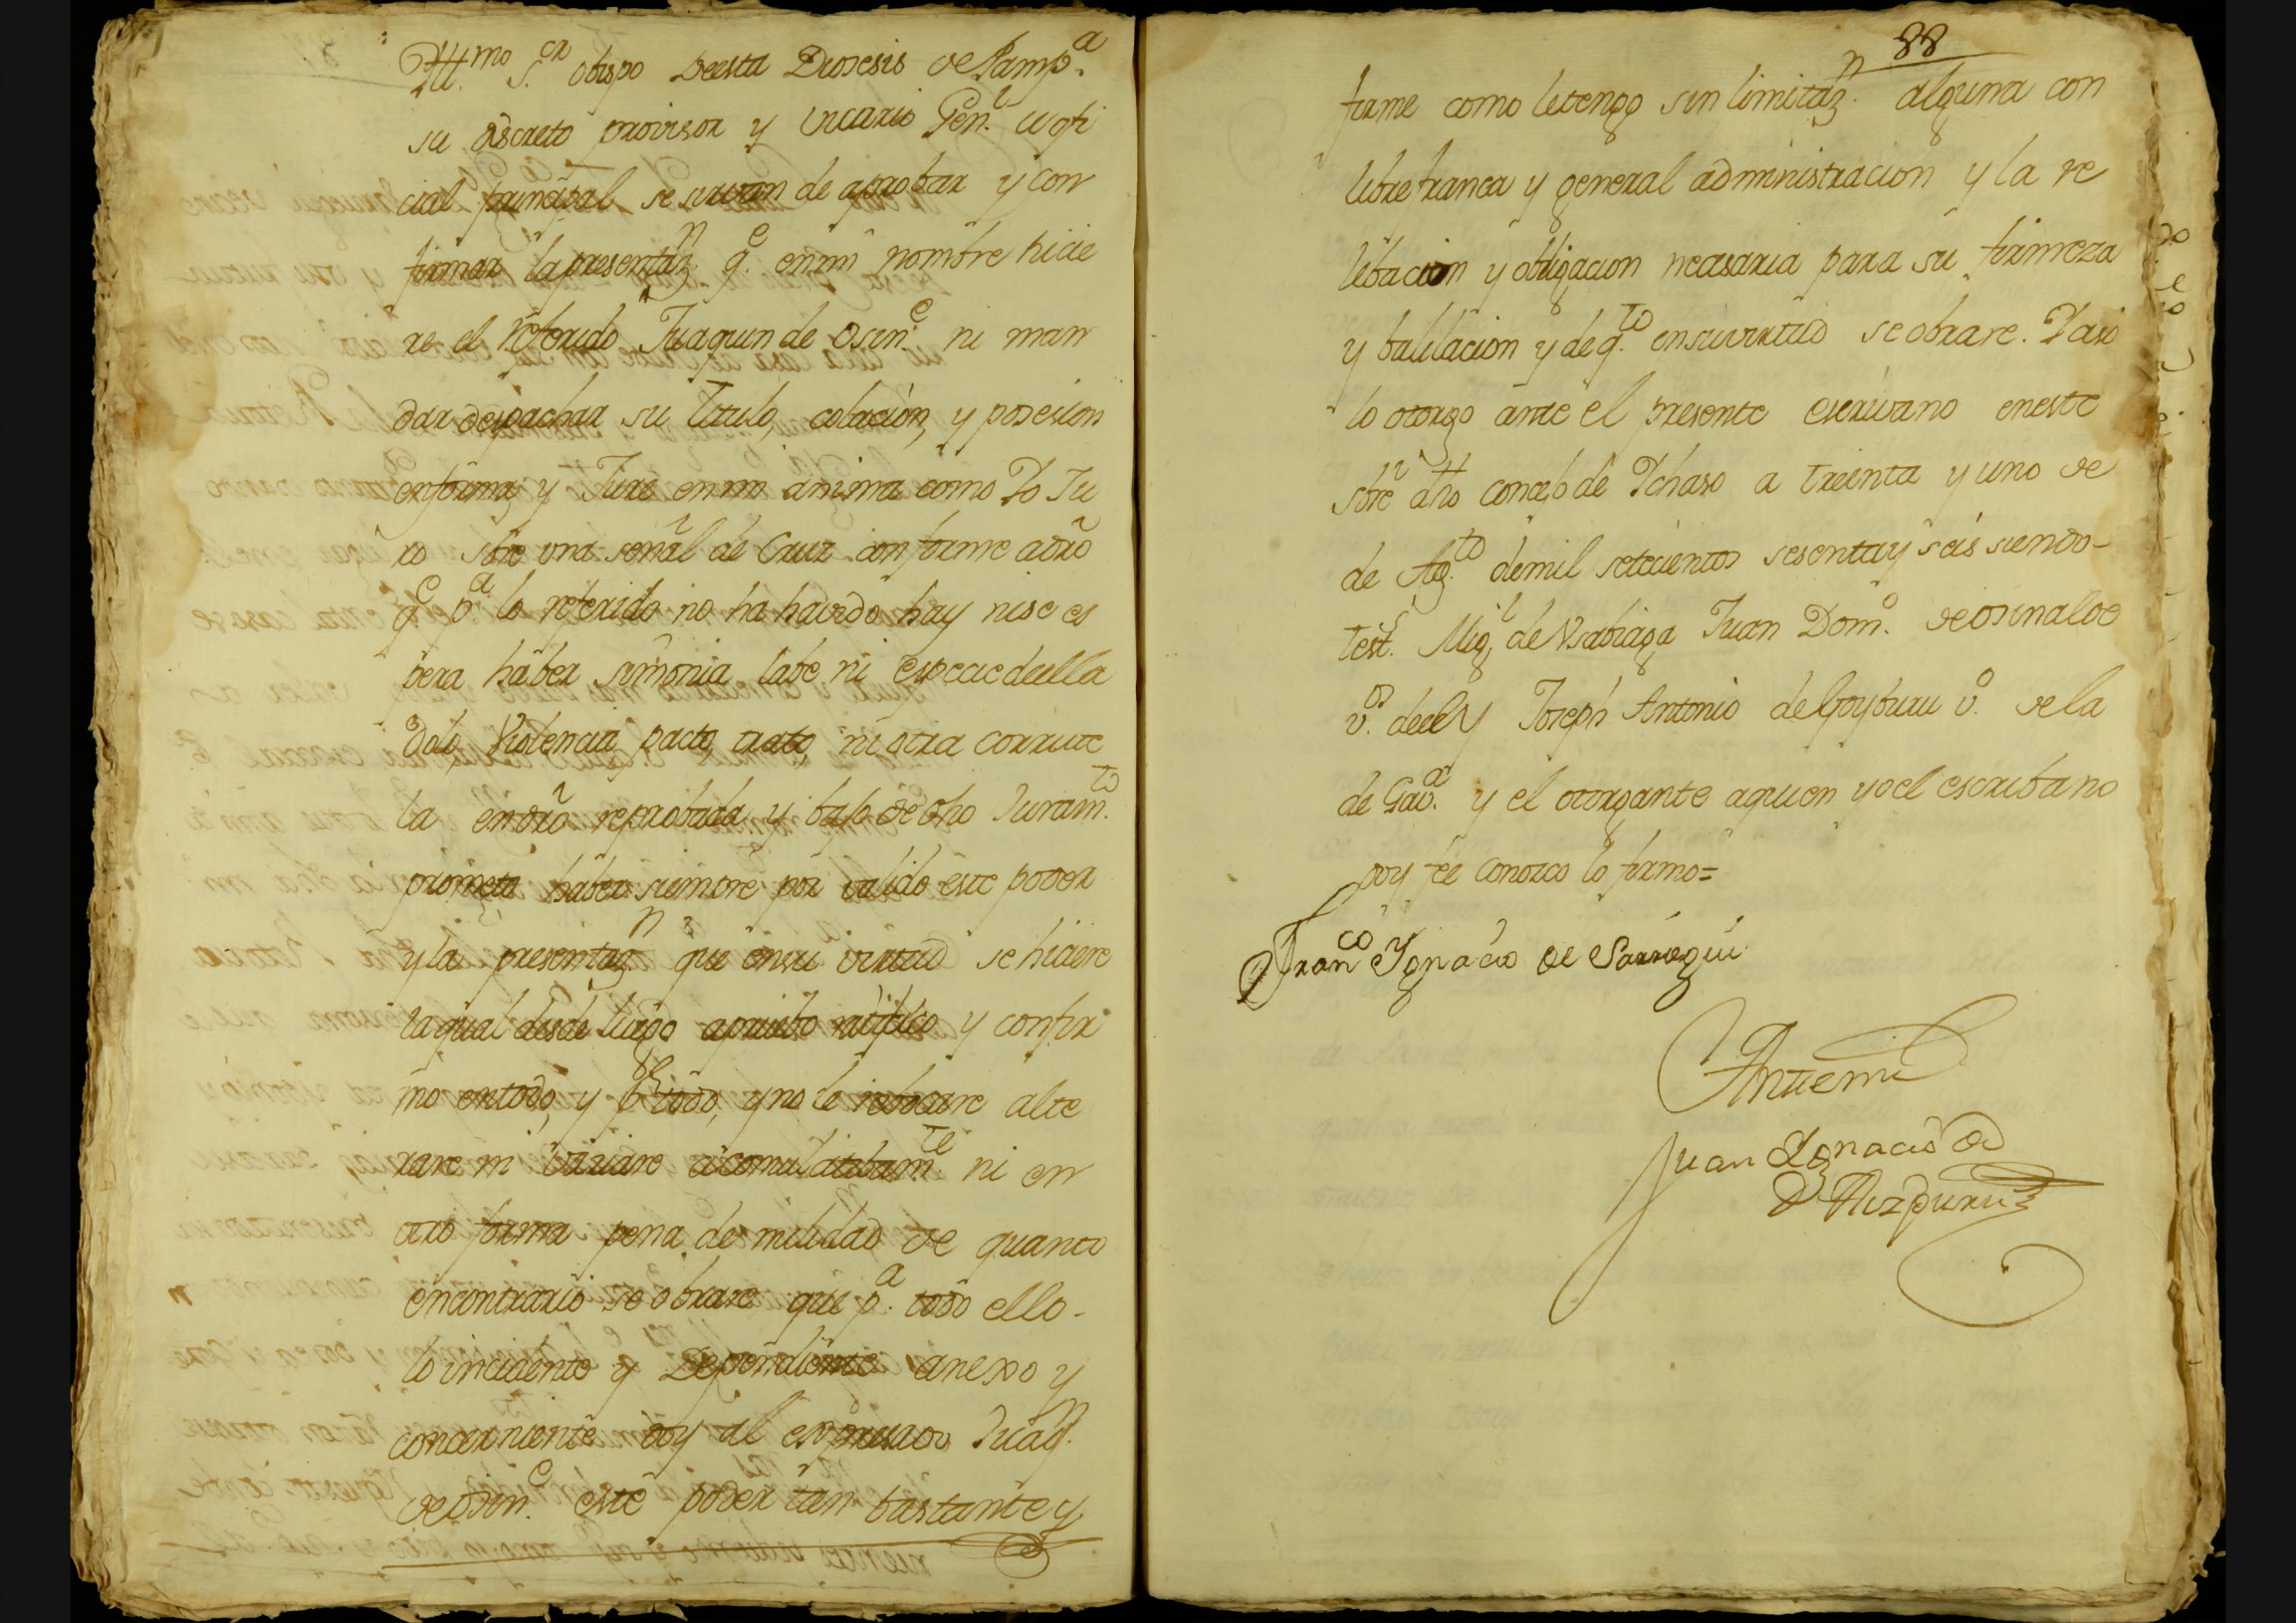 Ill.mo S.or obispo deesta Diosesis de Pamp.a
su discreto provisor y vicario Gen.l u ofi
cial principal se sirvan de aprobar y con
firmar la presentaz.n q.e enmi nombre hicie
re el referido Juaquin de Osin.e ni man
dar despachar su titulo, colacion, y posesion
enforma, y Jure enmi anima como Yo Ju
ro sbre una señal de Cruz conforme adro
q.e p.a lo referido no ha havido hay nise es
pera haber simonia labe ni especie deella
Dolo, Violencia pacto, trato, ni otra corrute
la endro reprobada y bajo de dho Juram.to
prometo haber siempre por valido este poder
y la presentaz.n que ensu virtud se hiciere
la qual desde luego apruebo ratifico y confir
mo entodo, y p.r todo, y no le rebocare alte
rare ni variare acomulatibam.te ni en
otro forma pena de nulidad de quanto
encontrario se obrare que p.a todo ello
lo incidente y Dependiente anexo y
concerniente doy al expresado Juaq.n
de Osin.e este poder tan bastante y
88
firme como letengo sin limitaz.n alguna con
libre franca y general administracion y la re
lebacion y obligacion necesaria para su firmeza
y balidacion y de q.to ensuvirtud se obrare. Yasi
lo otorgo ante el presente escrivano eneste
sbre dho concejo de Ychaso a treinta y uno de
de Ag.to demil setecientos sesenta y seis siendo
test.s Mig.l de Vsabiaga Juan Dom.o de Osinalde
v.os deel y Joseph Antonio de Goyburu v.o de la
de Gav.a y el otorgante aquien yo el escribano
doy fee conozco lo firmo=
Fran.co Ygnacio de Sarriegui
Antemi
Juan Ygnacio de
Aizpuru